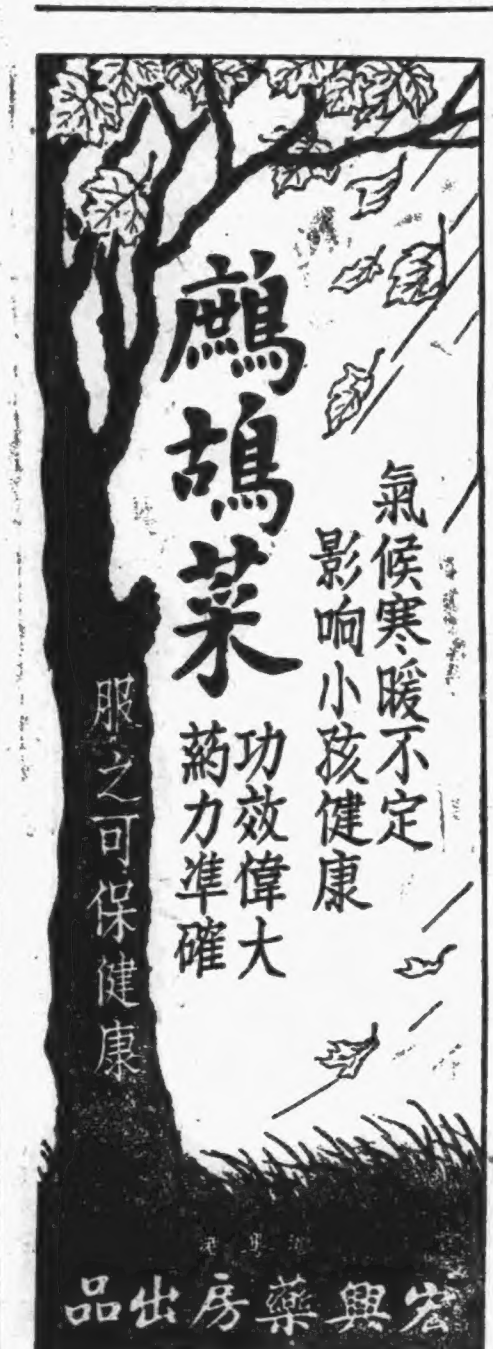 氣候寒暖不定
影响小孩健康
鷓鴣菜
功效偉大
葯力準確
服之可保健康
宏興藥房出品